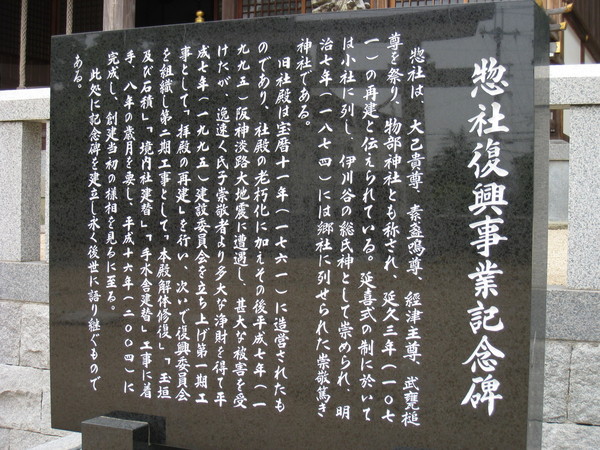 惣社復興事業記念碑
惣社は、大己貴尊 素盞嗚尊 經津主尊 武甕槌
尊を祭り、物部神社とも称され、延久三年(一〇七
一)の再建と伝えられている。延喜式の制に於いて
は小社に列し、伊川谷の総氏神として崇められ、明
治七年(一八七四)には郷社に列せられた崇敬篤き
神社である。
旧社殿は宝暦十一年(一七六一)に造営されたも
のであり、社殿の老朽化に加えその後平成七年(一
九九五)阪神淡路大地震に遭遇し、甚大な被害を受
けたが、逸速く氏子崇敬者より多大な浄財を得て平
成七年(一九九五)建設委員会を立ち上げ第一期工
事として、「拝殿の再建」を行い、次いで復興委員会
を組織し第二期工事として、「本殿解体修復」、「玉垣
及び石積」、「境内社建替」、「手水舎建替」工事に着
手、八年の歳月を要し、平成十六年(二〇〇四)に
完成し、創建当初の様相を見るに至る。
此処に記念碑を建立し永く後世に語り継ぐもので
ある。